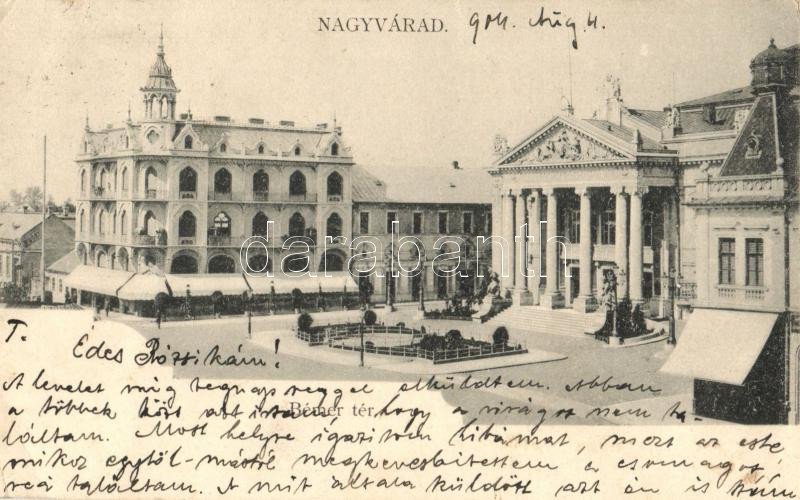 NAGYVÁRAD. 904. Aug 4.
darabanth.com
T. Édes Rózsikám!
A levelet még tegnap reggel elküldtem. Abban
a többek közt azt írtam Bémer tér. hogy a virágot nem ta-
láltam. Most helyre igazitom hibámat, mert az este
mikor egytől-másról megkevesbitettem a csomagot,
reá találtam. A mit általa küldött azt én is